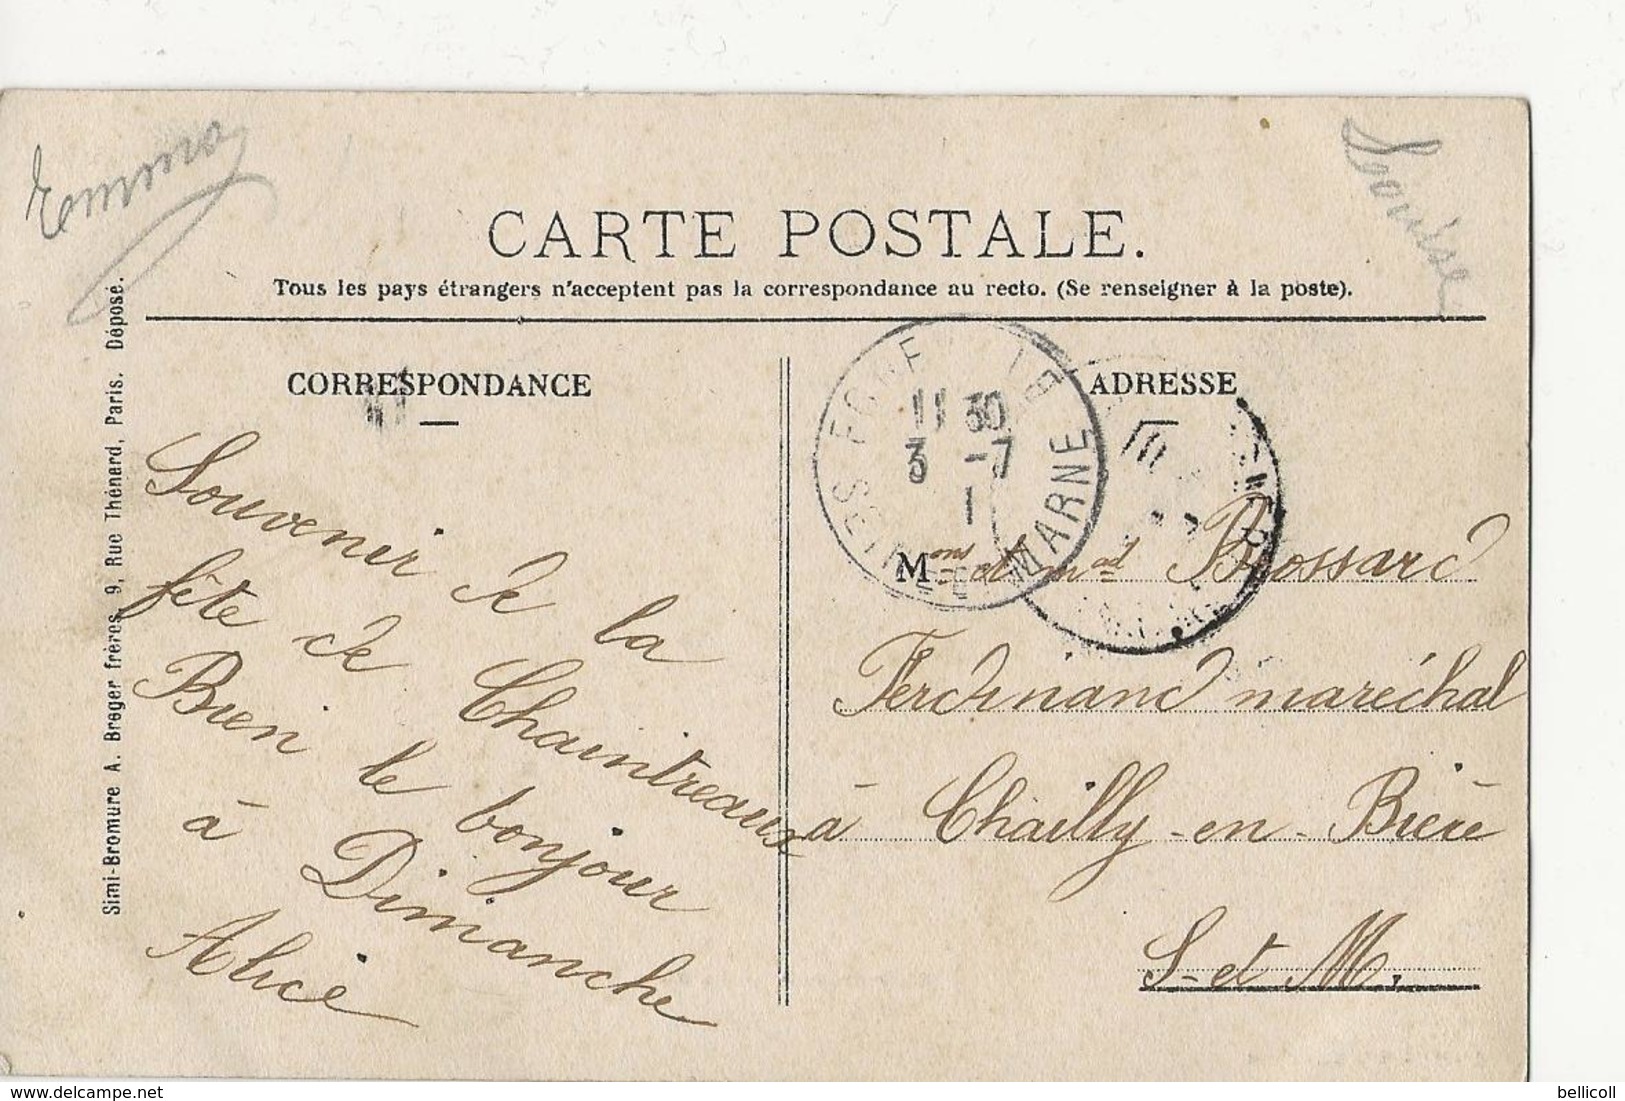 Emma
Louise
CARTE POSTALE.
Tous les pays étrangers n'acceptent pas la correspondance au recto. (Se renseigner à la poste).
CORRESPONDANCE
Souvenir de la
fête de Chaintreaux
Bien le bonjour
à Dimanche
Alice
ADRESSE
11 30
3 -7
1
SEINE ET MARNE
Mons et mad Brossard
Ferdinand maréchal
à Chailly-en-Bière
S-et M.
Simi-Bromure A. Breger frères, 9, Rue Thénard, Paris. Déposé.
bellicoll